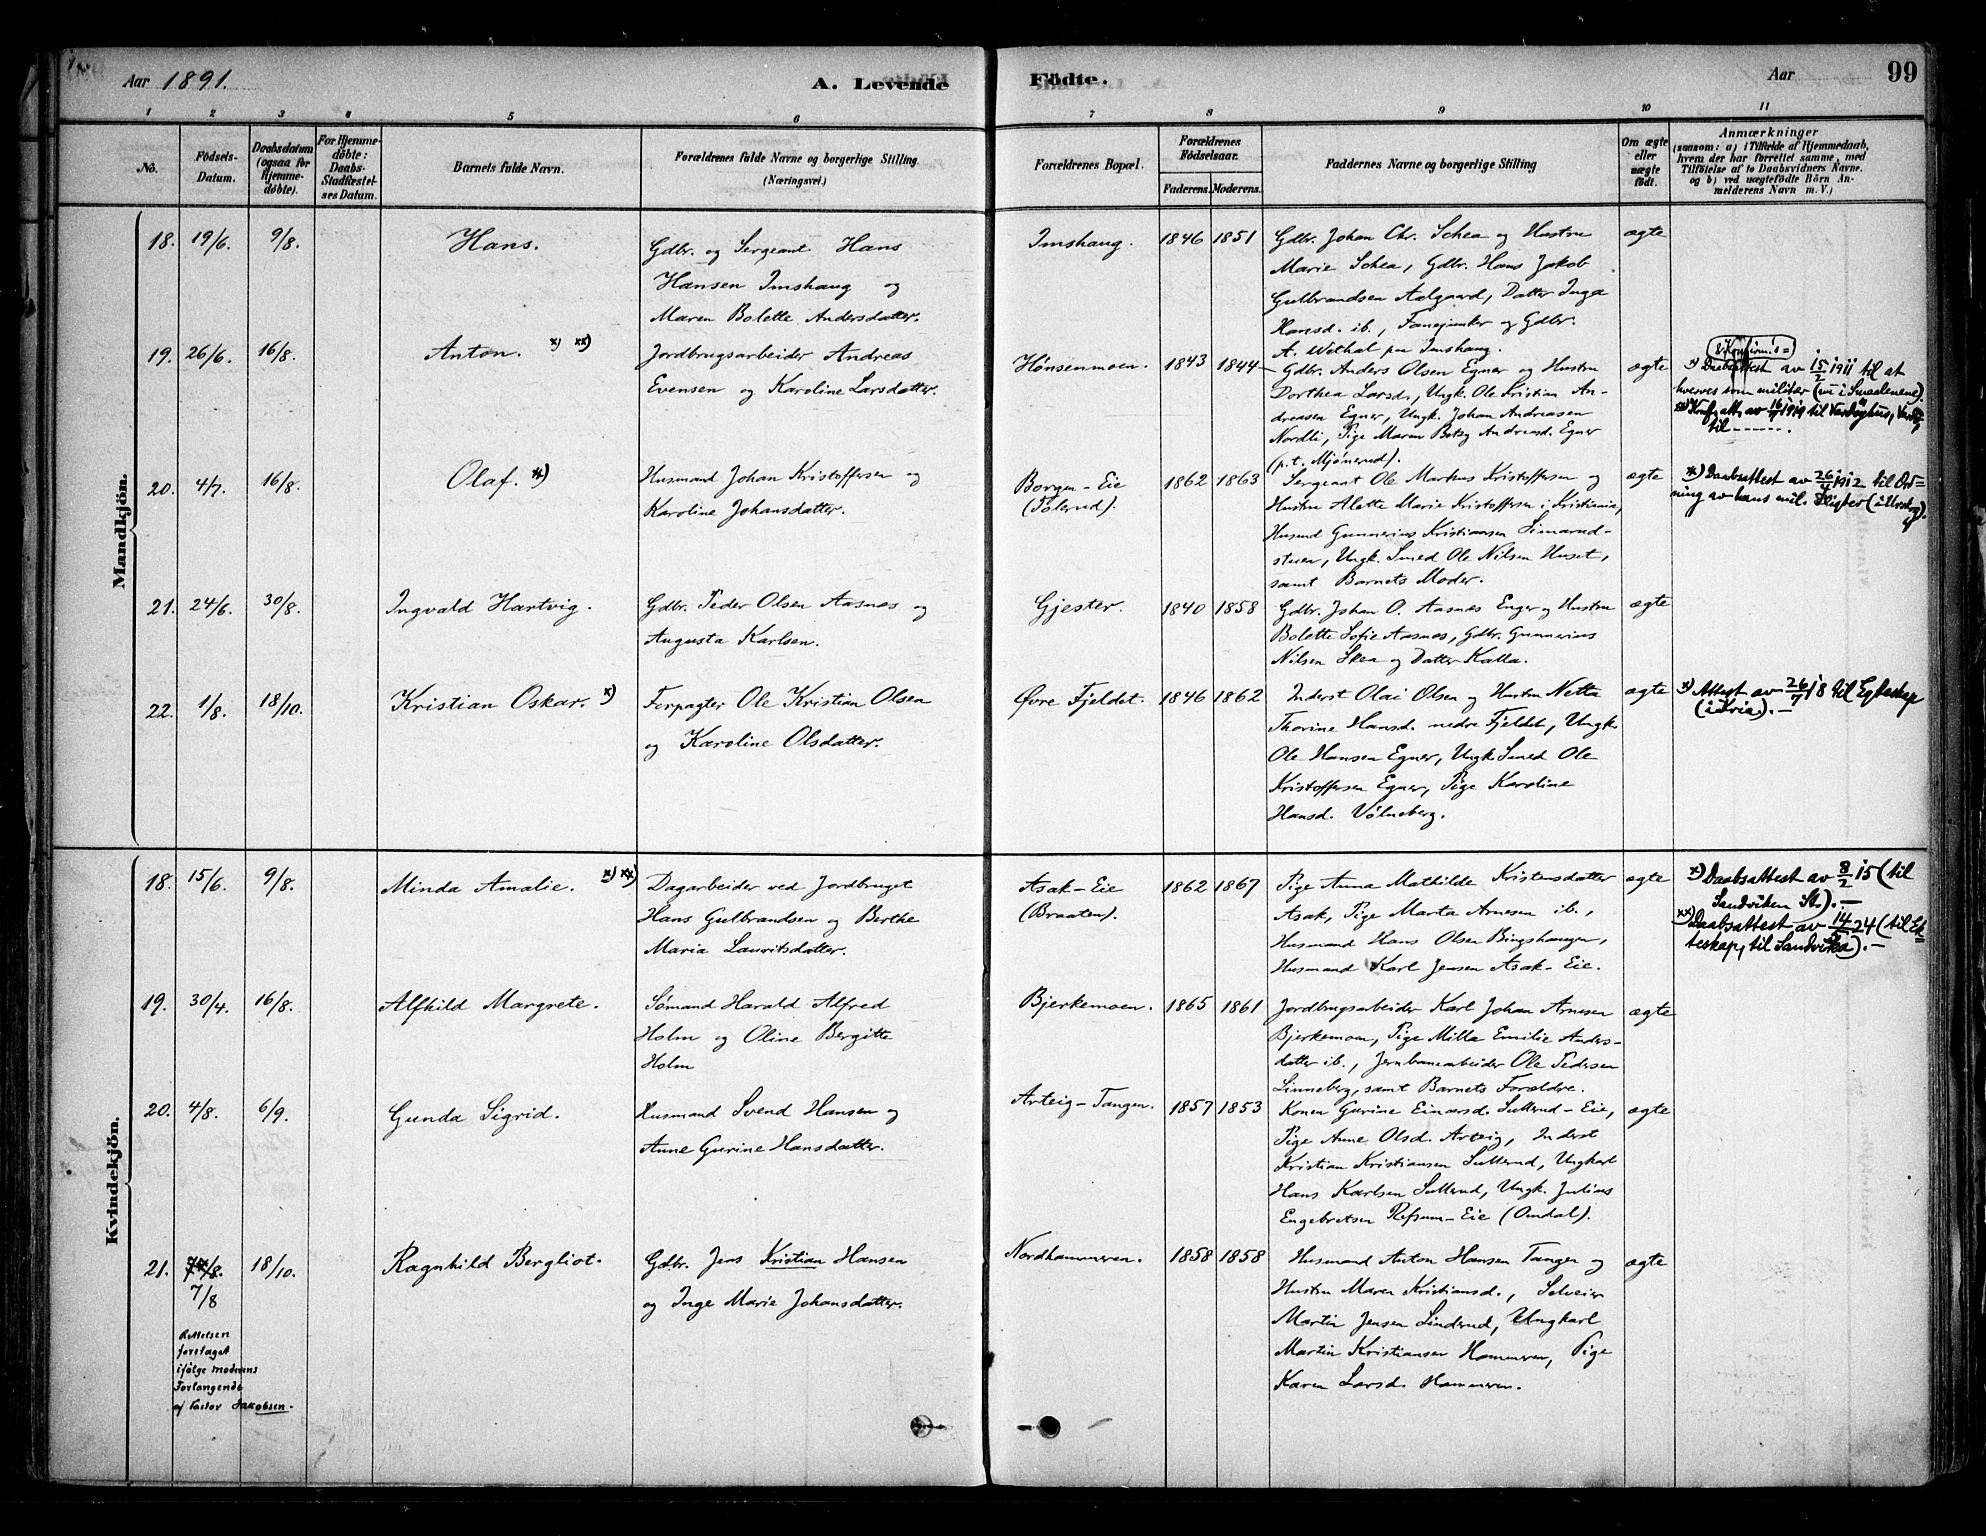 Aar 1891.
A. Levende
Födte.
Aar
99
1 2 3 4 5 6 7 8 9 10 11
No.
Födsels-
Datum.
Daabsdatum
(ogsaa for
Hjemme-
döbte).
For Hjemme-
döbte:
Daabs-
Stadfæstel-
ses Datum.
Barnets fulde Navn.
Forældrenes fulde Navne og borgerlige Stilling.
(Næringsvei.)
Forældrenes Bopæl.
Forældrenes
Födselsaar.
Faderens. Moderens.
Faddernes Navne og borgerlige Stilling
Om ægte
eller
uægte
födt.
Anmærkninger
(saasom: a) i Tilfælde af Hjemmedaab,
hvem der har forrettet samme, med
Tilföielse af to Daabsvidners Navne.
og b) ved uægtefödte Börn An-
melderens Navn m. V.)
Mandkjön.
18. 19/6. 9/8. Hans.
Gdbr. og Sergeant Hans
Hansen Imshaug og
Maren Bolette Andersdatter.
Imshaug. 1846 1851
Gdbr. Johan Chr. Schea og Hustru
Marie Schea, Gdbr. Hans Jakob
Gulbrandsen Aalgaard, Datter Inga
Hansd. ib., Fanejunker og Gdbr.
A. Wethal pr Imshaug.
ægte
19. 26/6. 16/8. Anton. x) xx)
Jordbrugsarbeider Andreas
Evensen og Karoline Larsdatter.
Hønsenmoen. 1843 1844
Gdbr. Anders Olsen Egner og Hustru
Dorthea Larsd., Ungk. Ole Kristian An-
dreasen Egner, Ungk. Johan Andreasen
Nordli, Pige Maren Betsy Andreasd. Egner
(p.t. Mjønerud).
ægte
x) Daabsattest av 15/2 1911 til at
hverves som militær (nu i Smaalenene).
20. 4/7. 16/8. Olaf. x)
Husmand Johan Kristoffersen og
Karoline Johansdatter.
Borgen-Eie
(Tolerud).
1862 1863
Sergeant Ole Markus Kristoffersen og
Hustru Alette Marie Kristoffersen i Kristiania,
Husmd Gunnerius Kristiansen Simarud-
stuen, Ungk. Smed Ole Nilsen Huset,
samt Barnets Moder.
ægte
x) Daabsattest av 26/4 1912 til Ord=
ning av hans mil. Pligter
21. 24/6. 30/8. Ingvald Hartvig.
Gdbr. Peder Olsen Aasnes og
Augusta Karlsen.
Gjester. 1840 1858
Gdbr. Johan O. Aasnes Enger og Hustru
Bolette Sofie Aasnes, Gdbr. Gunnerius
Nilsen Skea og Datter Kalla.
ægte
22. 1/8. 18/10. Kristian Oskar. x)
Forpagter Ole Kristian Olsen
og Karoline Olsdatter.
Øvre Fjeldet. 1846 1862
Inderst Olai Olsen og Hustru Netta
Thorine Hansd. nedre Fjeldet, Ungk.
Ole Hansen Egner, Ungk. Smed Ole
Kristoffersen Egner, Pige Karoline
Hansd. Vølneberg.
ægte
x) Attest av 26/7 18 til Egteskap
(i Kria). –
Kvindekjön.
18. 15/6. 9/8. Minda Amalie. x) xx)
Dagarbeider ved Jordbruget
Hans Gulbrandsen og Berthe
Maria Lauritsdatter.
Asak-Eie
(Braaten).
1862 1867
Pige Anna Mathilde Kristensdatter
Asak, Pige Marta Arnesen ib.,
Husmand Hans Olsen Bingshaugen,
Husmand Karl Jensen Asak-Eie.
ægte
x) Daabsattest av 8/2 15 (til
Sandviken St). –
xx) Daabsattest av 14/ 24 (til Ek
teskap, til Sandvika). –
19. 30/4. 16/8. Alfhild Margrete.
Sømand Harald Alfred
Holm og Oline Bergitte
Holm
Bjerkemoen. 1865 1861
Jordbrugsarbeider Karl Johan Arnesen
Bjerkemoen, Pige Milla Emilie Anders-
datter ib., Jernbanearbeider Ole Pedersen
Linneberg, samt Barnets Forældre.
ægte
20. 4/8. 6/9. Gunda Sigrid.
Husmand Svend Hansen og
Anne Gurine Hansdatter.
Arteig-Tangen. 1857 1853
Konen Gurine Einarsd. Sulterud-Eie,
Pige Anne Olsd. Arteig, Inderst
Kristian Kristiansen Sulterud, Ungkarl
Hans Karlsen Sulterud, Ungk. Julius
Engebretsen Refsum-Eie (Omdal).
ægte
21. 7/8 18/10. Ragnhild Bergliot.
Gdbr. Jens Kristian Hansen
og Inge Marie Johansdatter.
Nordhammeren. 1858 1858
Husmand Anton Hansen Tangen og
Hustru Maren Kristiansd., Selveier
Martin Jensen Linderud, Ungkarl
Martin Kristiansen Hammeren, Pige
Karen Larsd. Hammeren.
ægte
Rettelsen
foretaget
ifølge moderens
Forlangende
af Pastor Jakobsen.